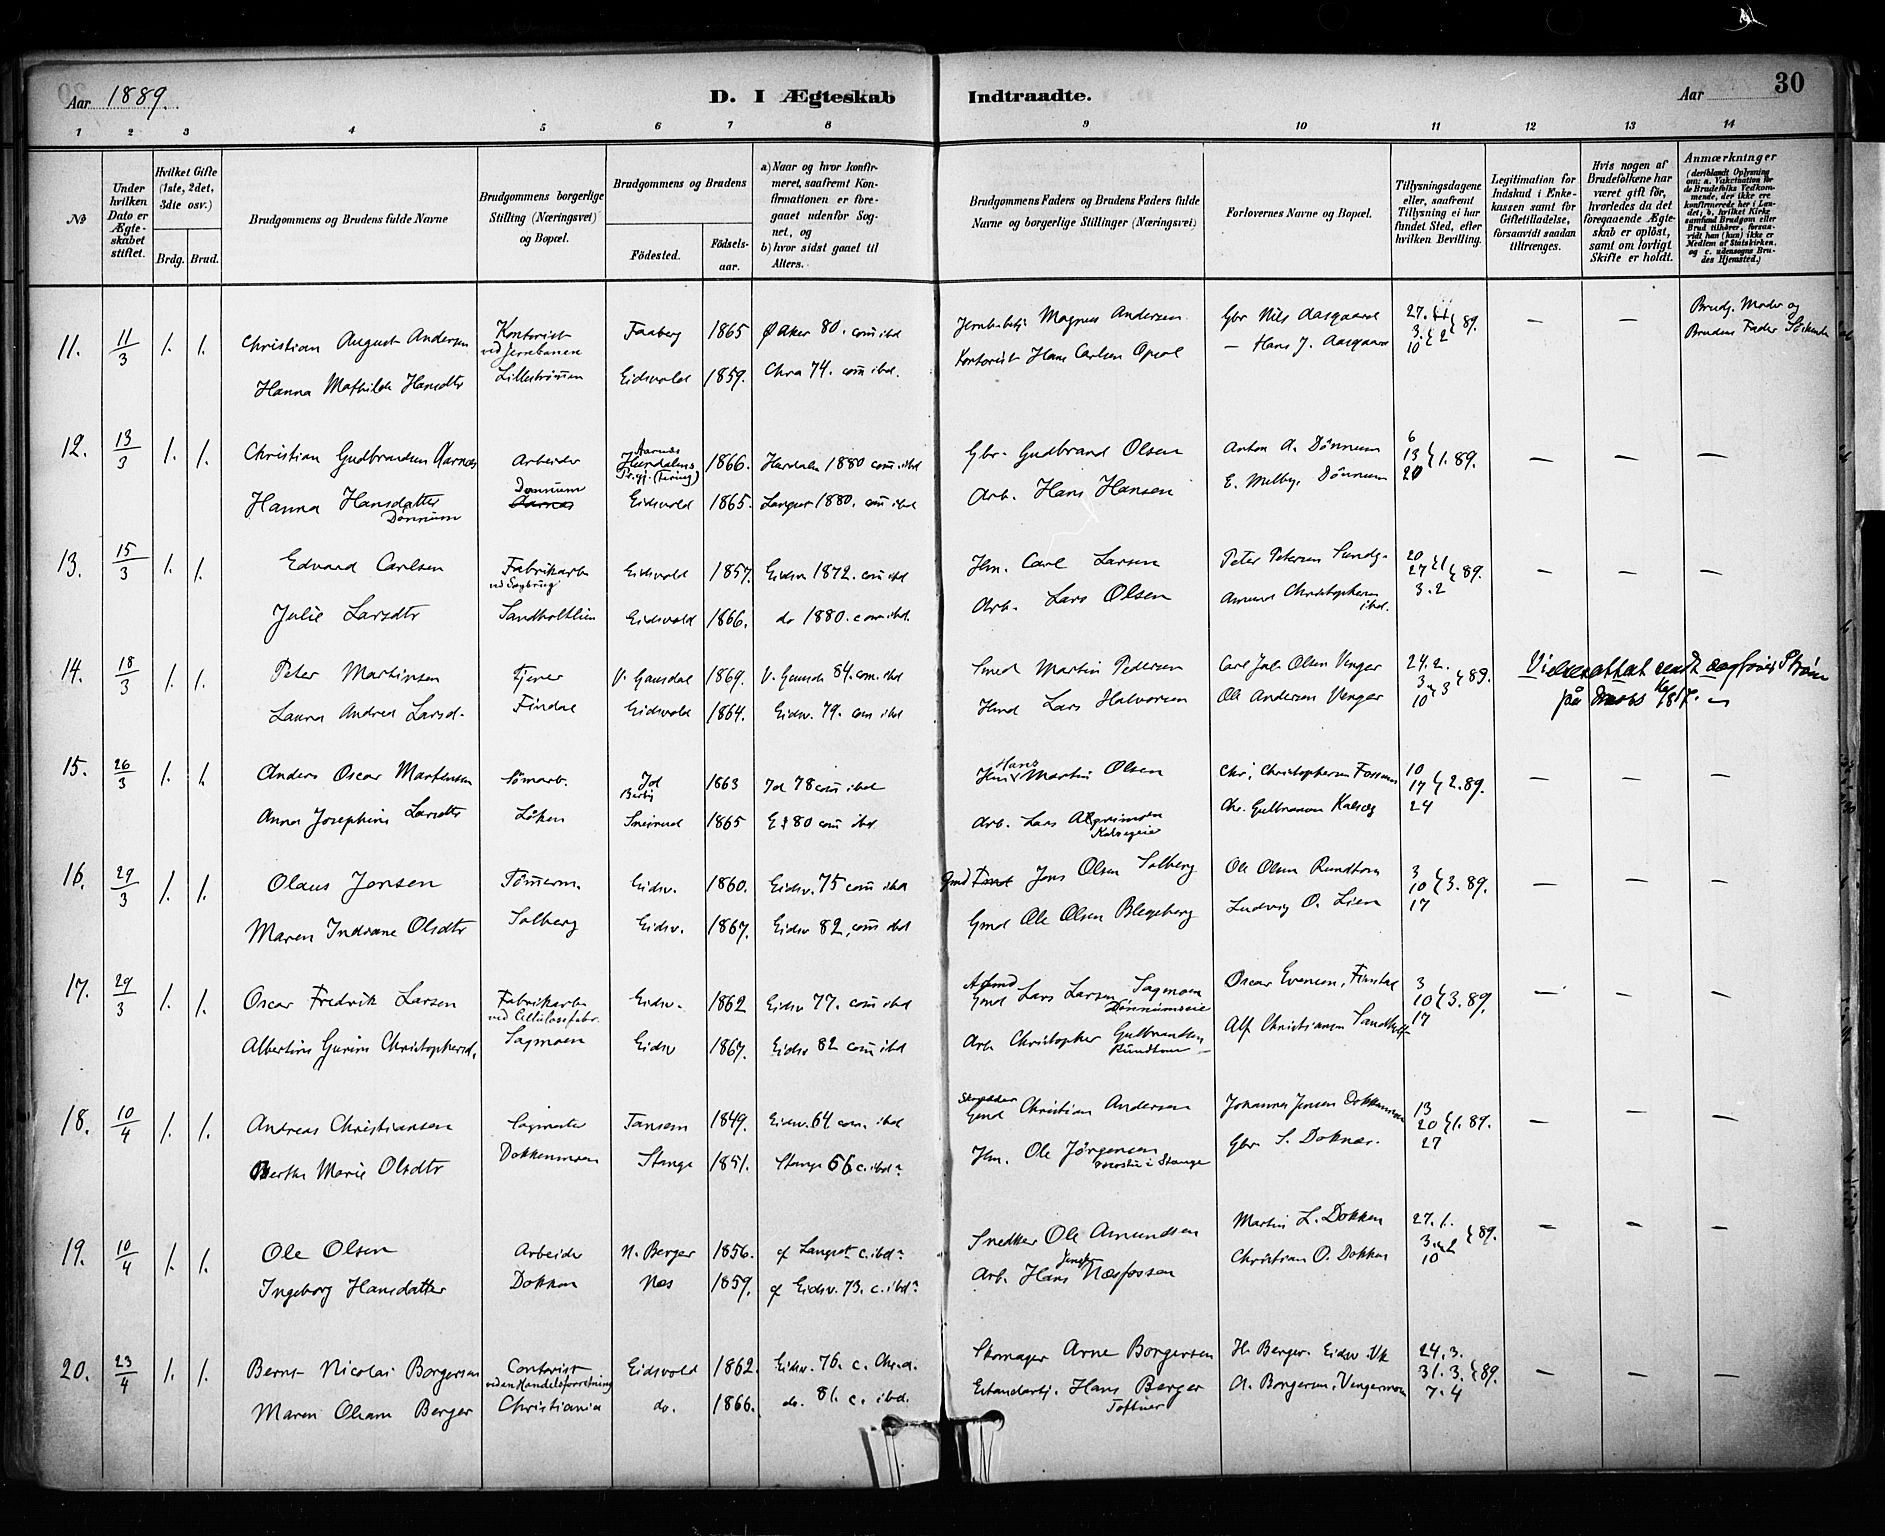 Aar 1889.
D. I Ægteskab Indtraadte.
Aar
30
1 2 3 4 5 6 7 8 9 10 11 12 13 14
No
Under hvilken Dato er Ægteskabet stiftet.
Hvilket Gifte (1ste, 2det, 3die osv.)
Brdg. Brud.
Brudgommens og Brudens fulde Navne
Brudgommens borgerlige Stilling (Næringsvei) og Bopæl.
Brudgommens og Brudens
Födested.
Födselsaar.
a) Naar og hvor konfirmeret, saafremt Konfirmationen er foregaaet udenfor Sognet, og
b) hvor sidst gaaet til Alters.
Brudgommens Faders og Brudens Faders fulde Navne og borgerlige Stillinger (Næringsvei)
Forlovernes Navne og Bopæl.
Tillysningsdagene eller, saafremt Tillysning ei har fundet Sted, efter hvilken Bevilling.
Legitimation for Indskud i Enkekassen samt for Giftetilladelse, forsaavidt saadan tiltrænges.
Hvis nogen af Brudefolkene har været gift för, hvorledes da det foregaaende Ægteskab er oplöst, samt om lovligt Skifte er holdt.
Anmærkninger (deriblandt Oplysning om: a. Vakcination for de Brudefolks Vedkommende, der ikke ere konfirmerede her i Landet; b. hvilket Kirkesamfund Brudgom eller Brud tilhörer, forsaavidt han (hun) ikke er Medlem af Statskirken, og c. udensogns Brudes Hjemsted.)
11. 11/3 1. 1. Christian August Andersen Kontorist ved Jernbanen Faaberg 1865 Ø Aker 80. com ibd Magnus Andersen Gbr Nils Aasgaard 27. 3. 2 89. — — Brudg. Moder og
Hanna Mathilde Hansdtr Lillestrømmen Eidsvold 1859. Chra 74. com ibd. Kontorist Hans Carlsen Opsal — Hans J. Aasgaard 10 Brudens Fader
12. 13/3 1. 1. Christian Gudbrandsen Aarnes Arbeider Aarnes Hurdalens 1866. Hurdalen 1880 com ibd Gbr. Gudbrand Olsen Anton A. Dønnum 6 13 20 1. 89. — — —
Hanna Hansdatter Dønnum Dønnum Aarnes Eidsvold 1865. Langset 1880. com ibd Arb. Hans Hansen E. Melby, Dønnum
13. 15/3 1. 1. Edvard Carlsen Fabrikarb. ved Sagbrug Eidsvold 1857. Eidsv 1872. com ibd Hm. Carl Larsen Peter Petersen Sandg. 20 27 1 89. — — —
Julie Larsdtr Sandholtlien Eidsvold 1866. do 1880. com ibd. Arb. Lars Olsen Amund Christophersen ibd. 3. 2
14. 18/3 1. 1. Peter Martinsen Tjener V. Gausdal 1869. V. Gausdal 84. com ibd Smed Martin Pedersen Carl Joh. Olsen Venger 24. 2. 3 10 3 89. Vielsesattest sendt
Laura Andrea Larsd. Findal Eidsvold 1864. Eidsv. 79. com ibd Hmd Lars Halvorsen Ole Andersen Venger
15. 26/3 1. 1. Anders Oscar Martensen Tömarb. Id Berby 1863 Id 78 com ibd Hm Hans Martin Olsen Chr. Christophersen Fossum 10 17 24 2. 89. — — —
Anna Josephine Larsdtr Löken 1865 80 com ibd Arb. Lars Chr. Gulbransen Kalseg
16. 29/3 1. 1. Olaus Jensen Tömmerm. Eidsv. 1860. Eidsv. 75 com ibd Gmd Jens Olsen Solberg Ole Olsen Rundtom 3 10 17 3. 89. — — —
Maren Indiane Olsdtr Solberg Eidsv. 1867. Eidsv 82. com ibd Gmd Ole Olsen Blegeberg Ludvig O. Lien
17. 29/3 1. 1. Oscar Fredrik Larsen Fabrikarb. ved Cellulosefabr. Eidsv. 1862 Eidsv 77. com ibd Gmd Lars Larsen Sagmoen Dönnumseie Oscar Evensen, Finstad 3 10 17 3. 89. — — —
Albertine Gurine Christophersd. Sagmoen Eidsv 1867. Eidsv 82 com ibd Arb Christopher Gulbrandsen Rundtom Alf Christiansen Sandholt
18. 10/4 1. 1. Andreas Christiansen Sagmester Tansem 1849. Eidsv. 64 com. ibd Skrædder Gmd Christian Andersen Johannes Jensen Dokkenmoen 13 20 27 1. 89. — — —
Berthe Marie Olsdtr Dokkenmoen Stange 1851. Stange 66 c. ibd. Hm. Ole Jörgensen i Stange Gbr S. Doknes.
19. 10/4 1. 1. Ole Olsen Arbeider N. Berger 1856. Langset c. ibd. Snedker Ole Amundsen Martin L. Dokken 27. 1. 3. 10 89. — — —
Ingeborg Hansdatter Dokken Nes 1859. Eidsv. 73. c. ibd. Arb. Hans Jensen Næsfossen Christian O. Dokken
20. 23/4 1. 1. Bernt Nicolai Borgersen Contorist ved en Handelsforretning Eidsvold 1862. Eidsv. 76. c. Chr.a. Skomager Arne Borgersen H. Berger. Eidsv. Vk 24. 3. 31. 3. 7. 4 89. — — —
Maren Oleane Berger Christiania do. 1866. do. 81. c. ibd. Hans Berger Toftner A. Borgersen, Vengermoen